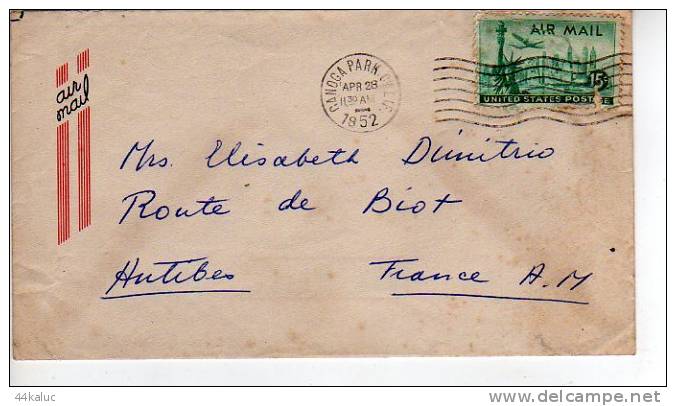 AIR MAIL
15¢
UNITED STATES POSTAGE
CANOGA PARK, CALIF.
APR 28
11 30 AM
1952
air
mail
Mrs. Elisabeth Dimitrio
Route de Biot
Antibes France A.M
44kaluc
delcampe.net